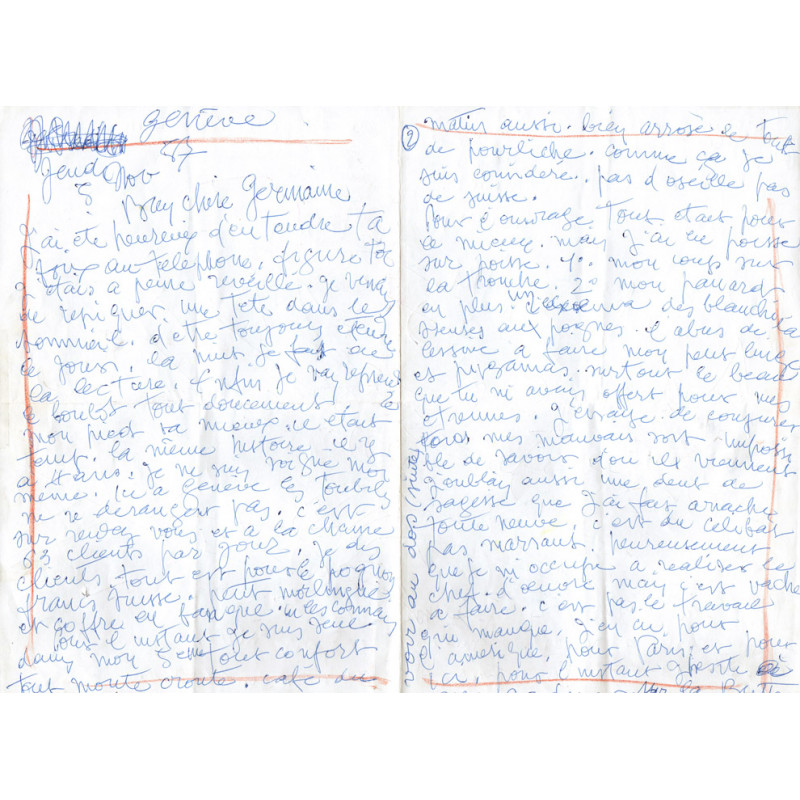 Genève
jeudi 3 Nov 77
Bien chère Germaine
j'ai été heureux d'entendre ta
voix au téléphone, figure toi
j'étais a peine reveillé. je venais
de repiquer une tête dans le
sommeil. d'être toujours
la nuit je fait de
la lecture. Enfin je vay reprendre
le boulot tout doucement
mon pied va mieux. ce était
toute la même histoire
a Paris. je me suy soigné moy
même. ici a Genève les toubibs
ne se dérangent pas. c'est
sur rendez vous et a la chaine
clients par jour, je dis
clients. tout est pour le pognon
francs suisse. petit
et coffre en banque. tu les connais
pour l'instant je suis seul
dans mon tout confort
tout monte croute. café du
②
matin aussi. bien arrosé le tout
de pourliche. comme ça je
suis considéré. pas d'oseille pas
de suisse.
Pour l'ouvrage tout était pour
le mieux. mais j'ai eu poisse
sur poisse. 1º. mon coup sur
la tronche. 2º mon panard
en plus un des blanchis
seuses aux pognes. l'abus de
lessive a faire mon petit linge
et pyjamas. surtout le beau
que tu m'avais offert pour mes
etrennes. j'essaye de conjurer
mes mauvais sort impossi
ble de savoir d'ou ils viennent
j'oubliais aussi une dent de
sagesse que j'ai fait arracher
toute neuve. c'est du celibat
pas marrant. heureusement
que je m'occupe a realiser les
chef d'oeuvre mais c'est vache
a faire. c'est pas le travail
qui manque, j'en ai pour
l'amerique, pour Paris et pour
ici, pour l'instant
sur la
voir au dos (suite)